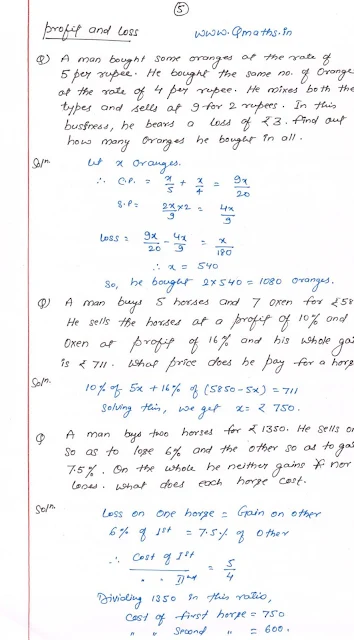 5
profit and loss www.Qmaths.in
Q) A man bought some oranges at the rate of
5 per rupee. He bought the same no. of Orange
at the rate of 4 per rupee. He mixes both the
types and sells at 9 for 2 rupees. In this
business, he bears a loss of ₹3. find out
how many Oranges he bought in all.
Solⁿ. Let x Oranges.
∴ C.P. = x/5 + x/4 = 9x/20
S.P = 2x×2/9 = 4x/9
Loss = 9x/20 - 4x/9 = x/180
∴ x = 540
So, he bought 2×540 = 1080 oranges.
Q) A man buys 5 horses and 7 oxen for ₹58
He sells the horses at a profit of 10% and
Oxen at profit of 16% and his whole gai
is ₹ 711. What price does he pay for a hors
Solⁿ. 10% of 5x + 16% of (5850-5x) = 711
Solving this, we get x = ₹ 750.
Q A man buys two horses for ₹1350. He sells on
so as to lose 6% and the other so as to gai
7.5%. On the whole he neither gains nor
loses. What does each horse cost.
Solⁿ. Loss on one horse = Gain on other
6% of Ist = 7.5% of other
∴ Cost of Ist / " " IInd = 5/4
Dividing 1350 in this ratio,
Cost of first horse = 750
" " Second " = 600.